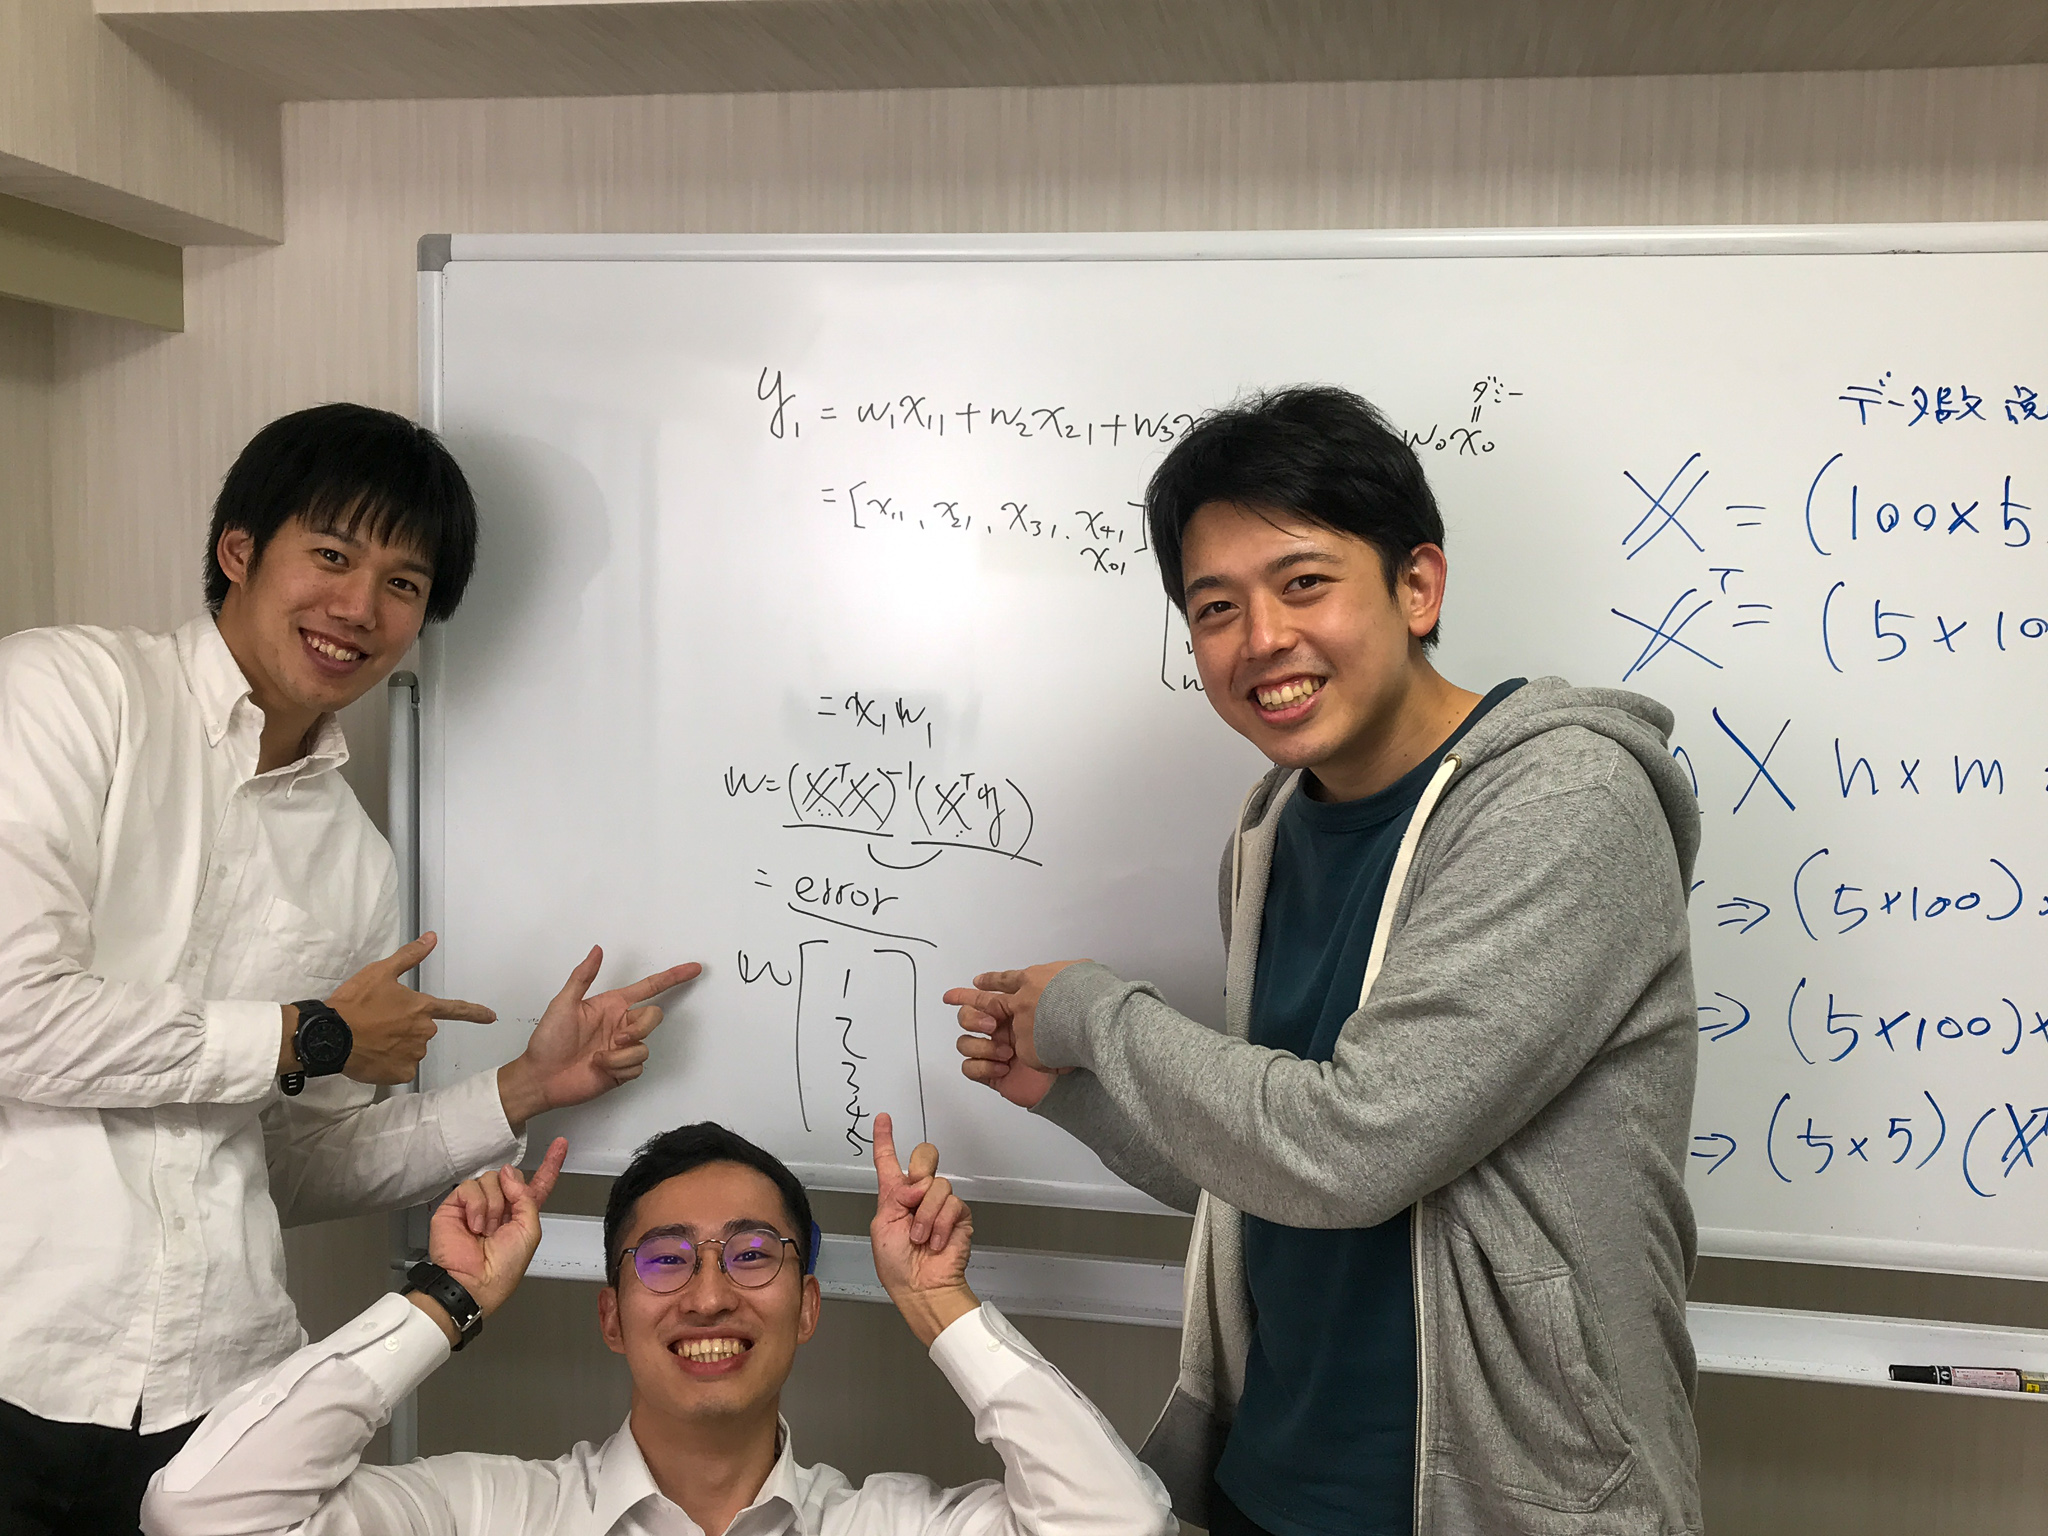 y₁ = w₁x₁₁ + w₂x₂₁ + w₃x
w₀x₀
ダミー
=
= [x₁₁, x₂₁, x₃₁, x₄₁]
x₀₁
w
= x₁w₁
w = (XᵀX)⁻¹(Xᵀy)
= error
w [
1
2
3
4
5
]
データ数
X = (100×5
Xᵀ = (5×10
X n×m =
⇒ (5×100)×
⇒ (5×100)×
⇒ (5×5)(Xᵀ